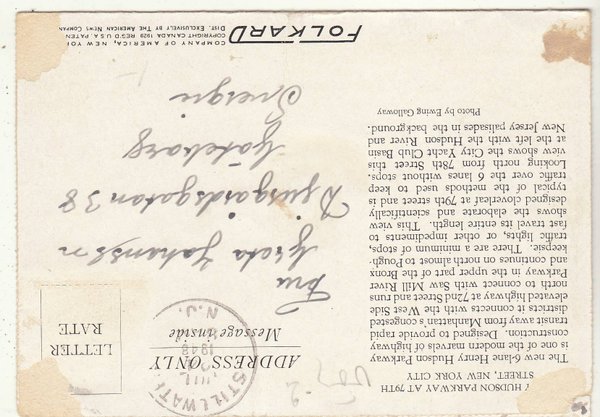 Y HUDSON PARKWAY AT 79TH
STREET, NEW YORK CITY
The new 6-lane Henry Hudson Parkway
is one of the modern marvels of highway
construction. Designed to provide rapid
transit away from Manhattan's congested
districts it connects with the West Side
elevated highway at 72nd Street and runs
north to connect with Saw Mill River
Parkway in the upper part of the Bronx
and continues on north almost to Pough-
keepsie. There are a minimum of stops,
traffic lights, or other impediments to
fast travel its entire length. This view
shows the elaborate and scientifically
designed cloverleaf at 79th street and is
typical of the methods used to keep
traffic over the 6 lanes without stops.
Looking north from 78th Street this
view shows the City Yacht Club Basin
at the left with the Hudson River and
New Jersey palisades in the background.
Photo by Ewing Galloway
ADDRESS ONLY
Message inside
LETTER
RATE
STILLWAT
JUL
1948
N.J.
Fru
Greta Johansson
Djurgårdsgatan 38
Göteborg
Sverige
FOLKARD
COMPANY OF AMERICA, NEW YOR
COPYRIGHT CANADA 1929 REG'D U.S.A. PATEN
DIST. EXCLUSIVELY BY THE AMERICAN NEWS COMPAN